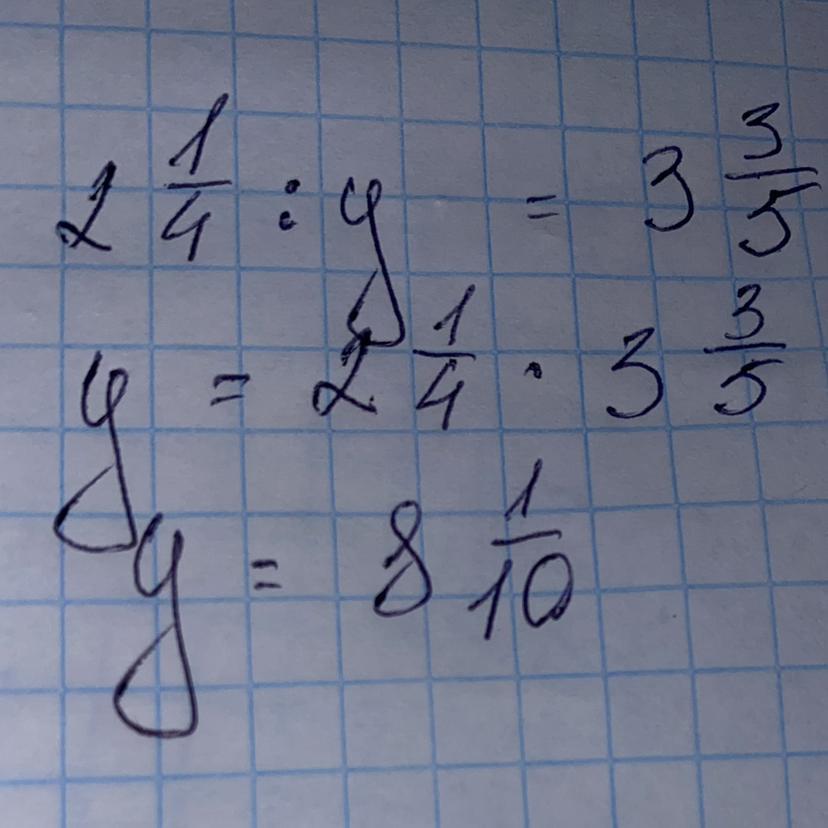 2 1/4 : y = 3 3/5
y = 2 1/4 · 3 3/5
y = 8 1/10